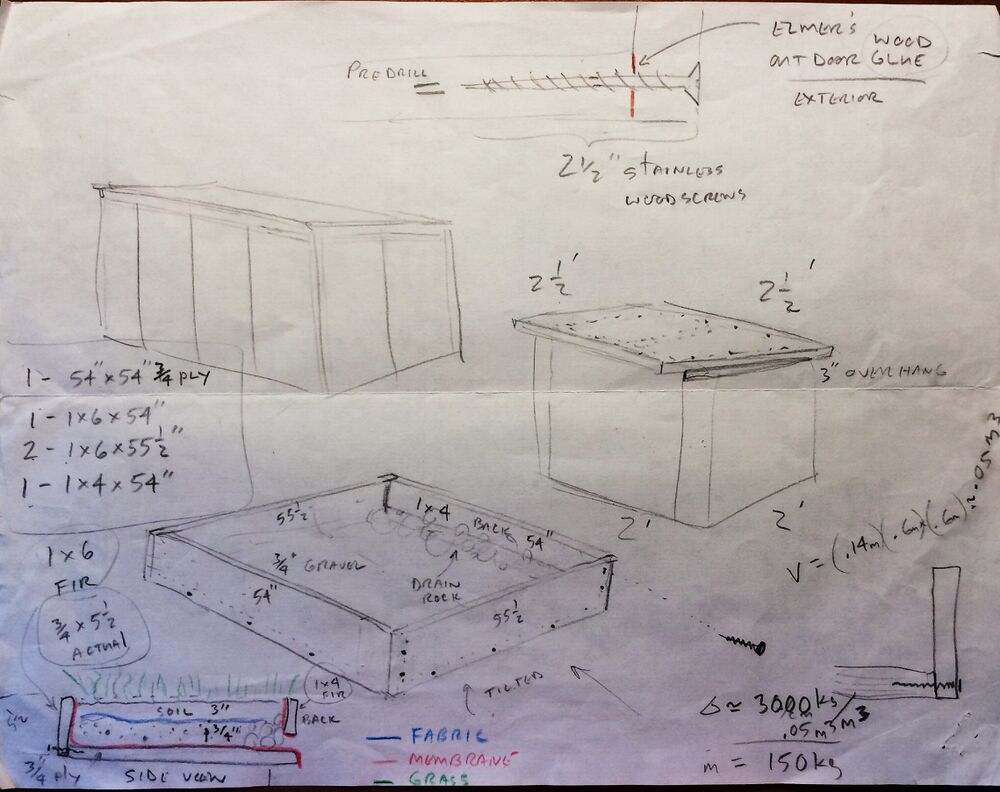 ELMER'S
OUTDOOR WOOD GLUE
EXTERIOR
PREDRILL
2 1/2" STAINLESS
WOODSCREWS
2 1/2'
2 1/2'
3" OVERHANG
2'
2'
1 - 54" x 54" 3/4 PLY
1 - 1x6 x 54"
2 - 1x6 x 55 1/2"
1 - 1x4 x 54"
V = (.14m)(.6m)x(.6m) ≈ .05m3
55 1/2
1x4
BACK
54"
3/4" GRAVEL
DRAIN
ROCK
54"
55 1/2
1x6
FIR
3/4 x 5 1/2
ACTUAL
TILTED
1x4
FIR
SOIL 3"
BACK
3/4"
3/4 PLY
SIDE VIEW
FABRIC
MEMBRANE
GRASS
≈ 3000 kg/m3
.05m3
m = 150kg